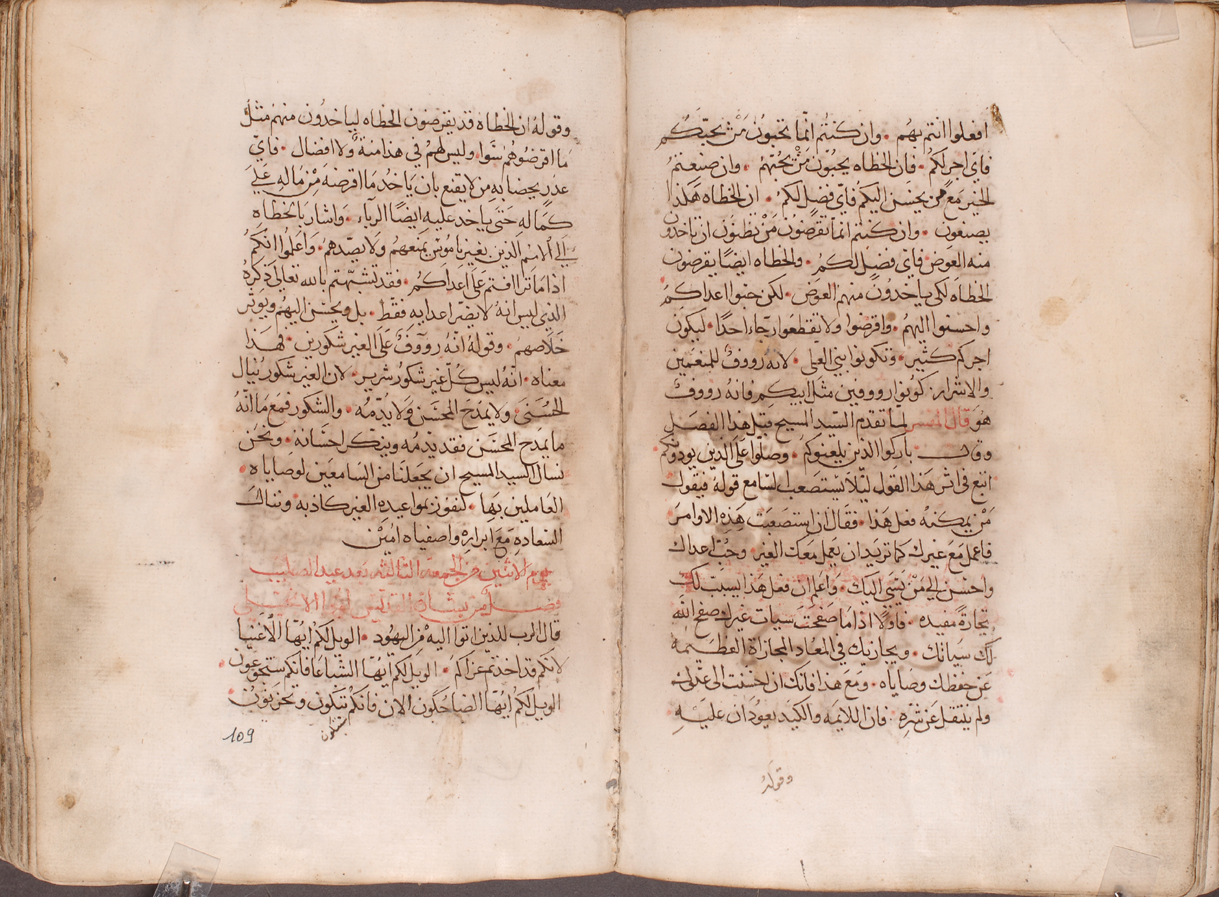 افعلوا انتم بهم • وان كنتم انما تحبون من يحبكم
فاي اجر لكم • فان الخطاه يحبون من يحبهم • وان صنعتم
الخير مع من يحسن اليكم فاي فضل لكم • ان الخطاه هكذا
يصنعون • وان كنتم انما تقرضون من تظنون ان تاخذون
منه العوض فاي فضل لكم • والخطاه ايضا يقرضون
الخطاه لكي ياخدون منهم العوض • لكن حبوا اعداكم
واحسنوا اليهم • واقرضوا ولا تقطعوا رجاء احدا • ليكون
اجركم كثير • وتكونوا بني العلي • لانه رووف للمنعمين
والاشرار • كونوا رووفين مثل ابيكم فانه رووف
هو قال المفسر لما تقدم السيد المسيح قبل هذا الفصل
وقال باركوا الذين يلعنوكم • وصلوا على الذين يودونكم
اتبع في اثر هذا القول ليلا يستصعب السامع قوله فيقول
من يمكنه فعل هذا • فقال ان استصعبت هذه الاوامر
فاعمل مع غيرك كما تريد ان يعمل معك الغير • وحب اعداك
واحسن الى من يسي اليك • واعلم ان فعل هذا يسبب لك
تجارة مفيده • فاولا اذا ما صفحت سيات غيرك صفح الله
لك سياتك • ويجازيك في المعاد المجازاة العظيمه
عن حفظك وصاياه • ومع هذا فانك ان احسنت الى عدوك
ولم ينتقل عن شره • فان اللايمه والكيد يعودان عليه
وقوله
وقوله ان الخطاه قد يقرضون الخطاه لياخدون منهم مثل
ما اقرضوهم سوا • وليس لهم في هذا منة ولا افضال • فاي
عدر يحضا به من لا يقنع بان ياخد ما اقرضه من ماله على
كماله حتى ياخد عليه ايضا الرباء • واشار بالخطاه
الى الامم الذين بغير ناموس يمنعهم ولا يصدهم • واعلموا انكم
اذا ما ترافتم على اعداكم • فقد تشبهتم بالله تعالى دكره
الذي ليس انه لا يضر اعدايه فقط • بل ويحسن اليهم ويوتر
خلاصهم • وقوله انه رووف على الغير شكورين • فهذا
معناه • انه ليس كل غير شكور شرير • لان الغير شكور ينال
الحسنى ولا يمدح المحسن ولا يدمه • والشكور فمع ما انه
ما يمدح المحسن فقد يدمه وينكر احسانه • ونحن
نسال السيد المسيح ان يجعلنا من السامعين لوصاياه
العاملين بها • لنفوز بمواعيده الغير كادبه وننال
السعادة مع ابراره واصفياه امين
يوم الاثنين من الجمعه الثالثه بعد عيد الصليب
فصل من بشارة القديس لوقا الانجيلي
قال الرب للذين اتوا اليه من اليهود • الويل لكم ايها الاغنيا
لانكم قد اخدتم عزاكم • الويل لكم ايها الشباعا فانكم ستجوعون
الويل لكم ايها الضاحكون الان فانكم تبكون وتحزنون
109